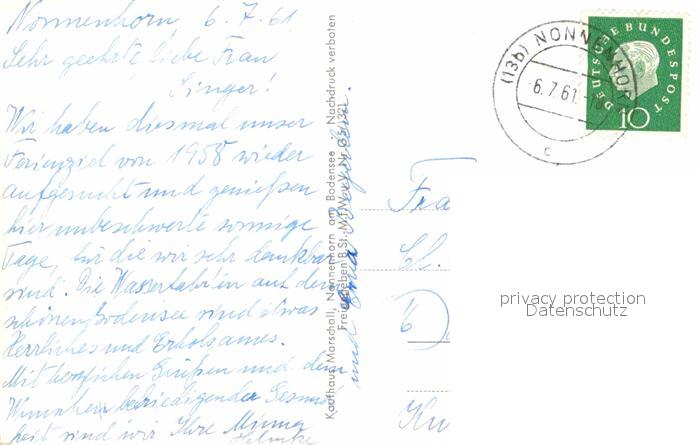 Nonnenhorn 6.7.61
Sehr geehrte, liebe Frau
Singer!
Wir haben diesmal unser
Ferienziel von 1958 wieder
aufgesucht und genießen
hier unbeschwerte sonnige
Tage, für die wir sehr dankbar
sind. Die Wasserfahrten auf dem
schönen Bodensee sind etwas
Herrliches und Erholsames.
Mit herzlichen Grüßen und dem
Wunsche befriedigender Gesund
heit sind wir Ihre Minna
und
Kaufhaus Marschall, Nonnenhorn am Bodensee Nachdruck verboten
Freigegeben B.St.-M.f.W.u.V. Nr. G5/1321
(13b) NONNENHORN
-6.7.61.-18
c
DEUTSCHE BUNDESPOST
10
Fra
privacy protection
Datenschutz